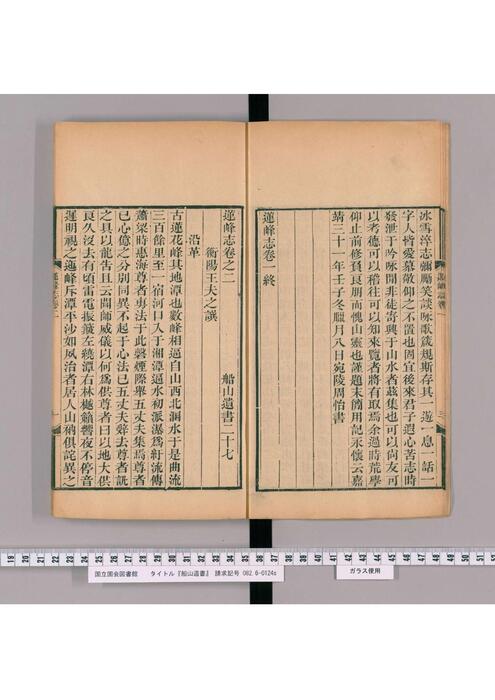 冰雪淬志彌勵笑談咏歌箴規斯存其一遊一息一話一
字人皆愛慕敬仰之不置也固宜後來君子遐心苦志時
發泄于吟咏間非徒寄興于山水者茲集也可以尙友可
以考德可以稽往可以知來覽者將有取焉余過時荒學
仰止前修負良朋而愧山靈也謹題末簡用記永懷云嘉
靖三十一年壬子冬臘月八日宛陵周怡書
蓮峰志卷一終
蓮峰志卷之二
船山遺書二十七
衡陽王夫之譔
沿革
古蓮花峰其地潭也數峰相逼自山西北澗水于是曲流
三百餘里至一宿河口入于湘潭逼水初派瀑為紆流傳
蕭梁時惠海尊者專法于此磬煙際舉五丈夫集焉尊者
已心億之分別同異不起于心法已五丈夫辭去尊者詵
之具以龍告且云聞師威儀以何為供尊者曰以地大供
良久沒去有頃雷電振簸左繞潭右林樾籟響夜不停音
遲明視之迤峰斥潭平沙如夙治者居人山衲俱詫異之
國立国会図書館　タイトル『船山遺書』　請求記号 082.6-0124s
ガラス使用